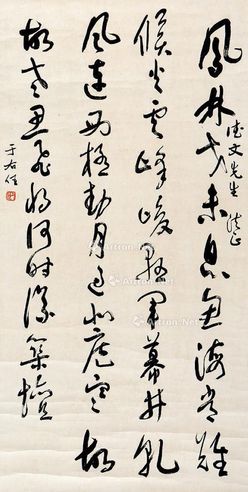 鳳林戈未息魚海路常難
候火雲峰峻懸軍幕井乾
風連西極動月過北庭寒 故
故老思飛將何時議築壇
德文先生 法正
于右任
Artron.Net